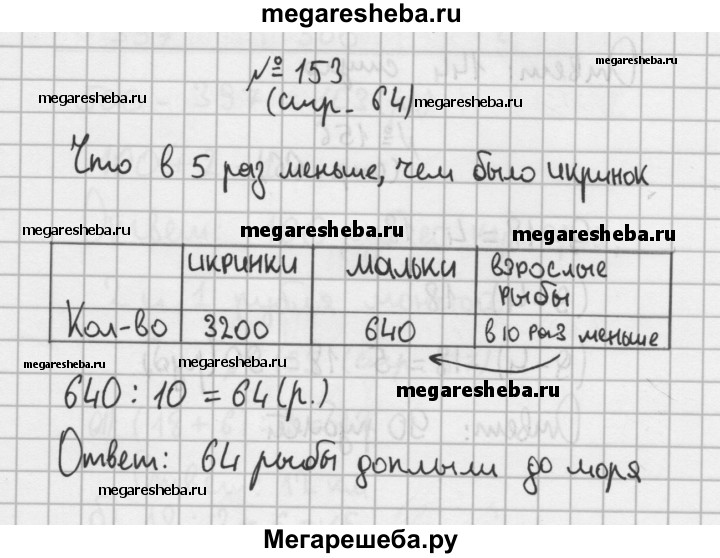 megaresheba.ru
№ 153
megaresheba.ru
megaresheba.ru (стр. 64) megaresheba.ru
Что в 5 раз меньше, чем было икринок
megaresheba.ru megaresheba.ru megaresheba.ru
икринки мальки взрослые рыбы
Кол-во 3200 640 в 10 раз меньше
megaresheba.ru megaresheba.ru
640 : 10 = 64 (р.) megaresheba.ru
Ответ: 64 рыбы доплыли до моря
megaresheba.ru
Мегарешеба.ру